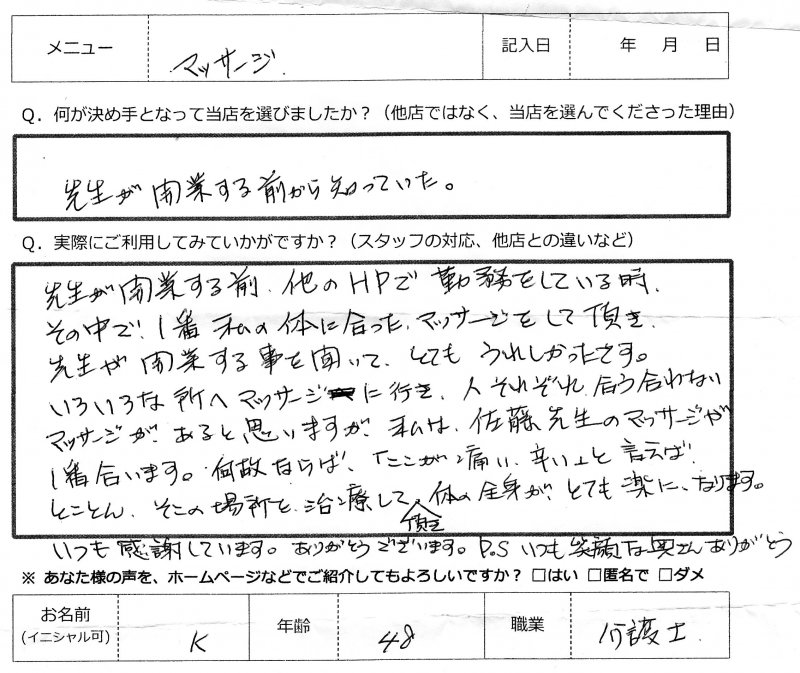 メニュー マッサージ 記入日 年 月 日
Q．何が決め手となって当店を選びましたか？（他店ではなく、当店を選んでくださった理由）
先生が開業する前から知っていた。
Q．実際にご利用してみていかがですか？（スタッフの対応、他店との違いなど）
先生が開業する前、他のHPで勤務をしている時、
その中で、1番私の体に合った、マッサージをして頂き、
先生が開業する事を聞いて、とてもうれしかったです。
いろいろな所へマッサージに行き、人それぞれ、合う合わない
マッサージが、あると思いますが、私は、佐藤先生のマッサージが
1番合います。何故ならば、「ここが痛い、辛い」と言えば、
とことん、そこの場所を、治療して頂き、体の全身が、とても楽に、なります。
いつも感謝しています。ありがとうございます。P.S いつも笑顔な奥さんありがとう
※ あなた様の声を、ホームページなどでご紹介してもよろしいですか？ □はい □匿名で □ダメ
お名前 K 年齢 48 職業 介護士
(イニシャル可)